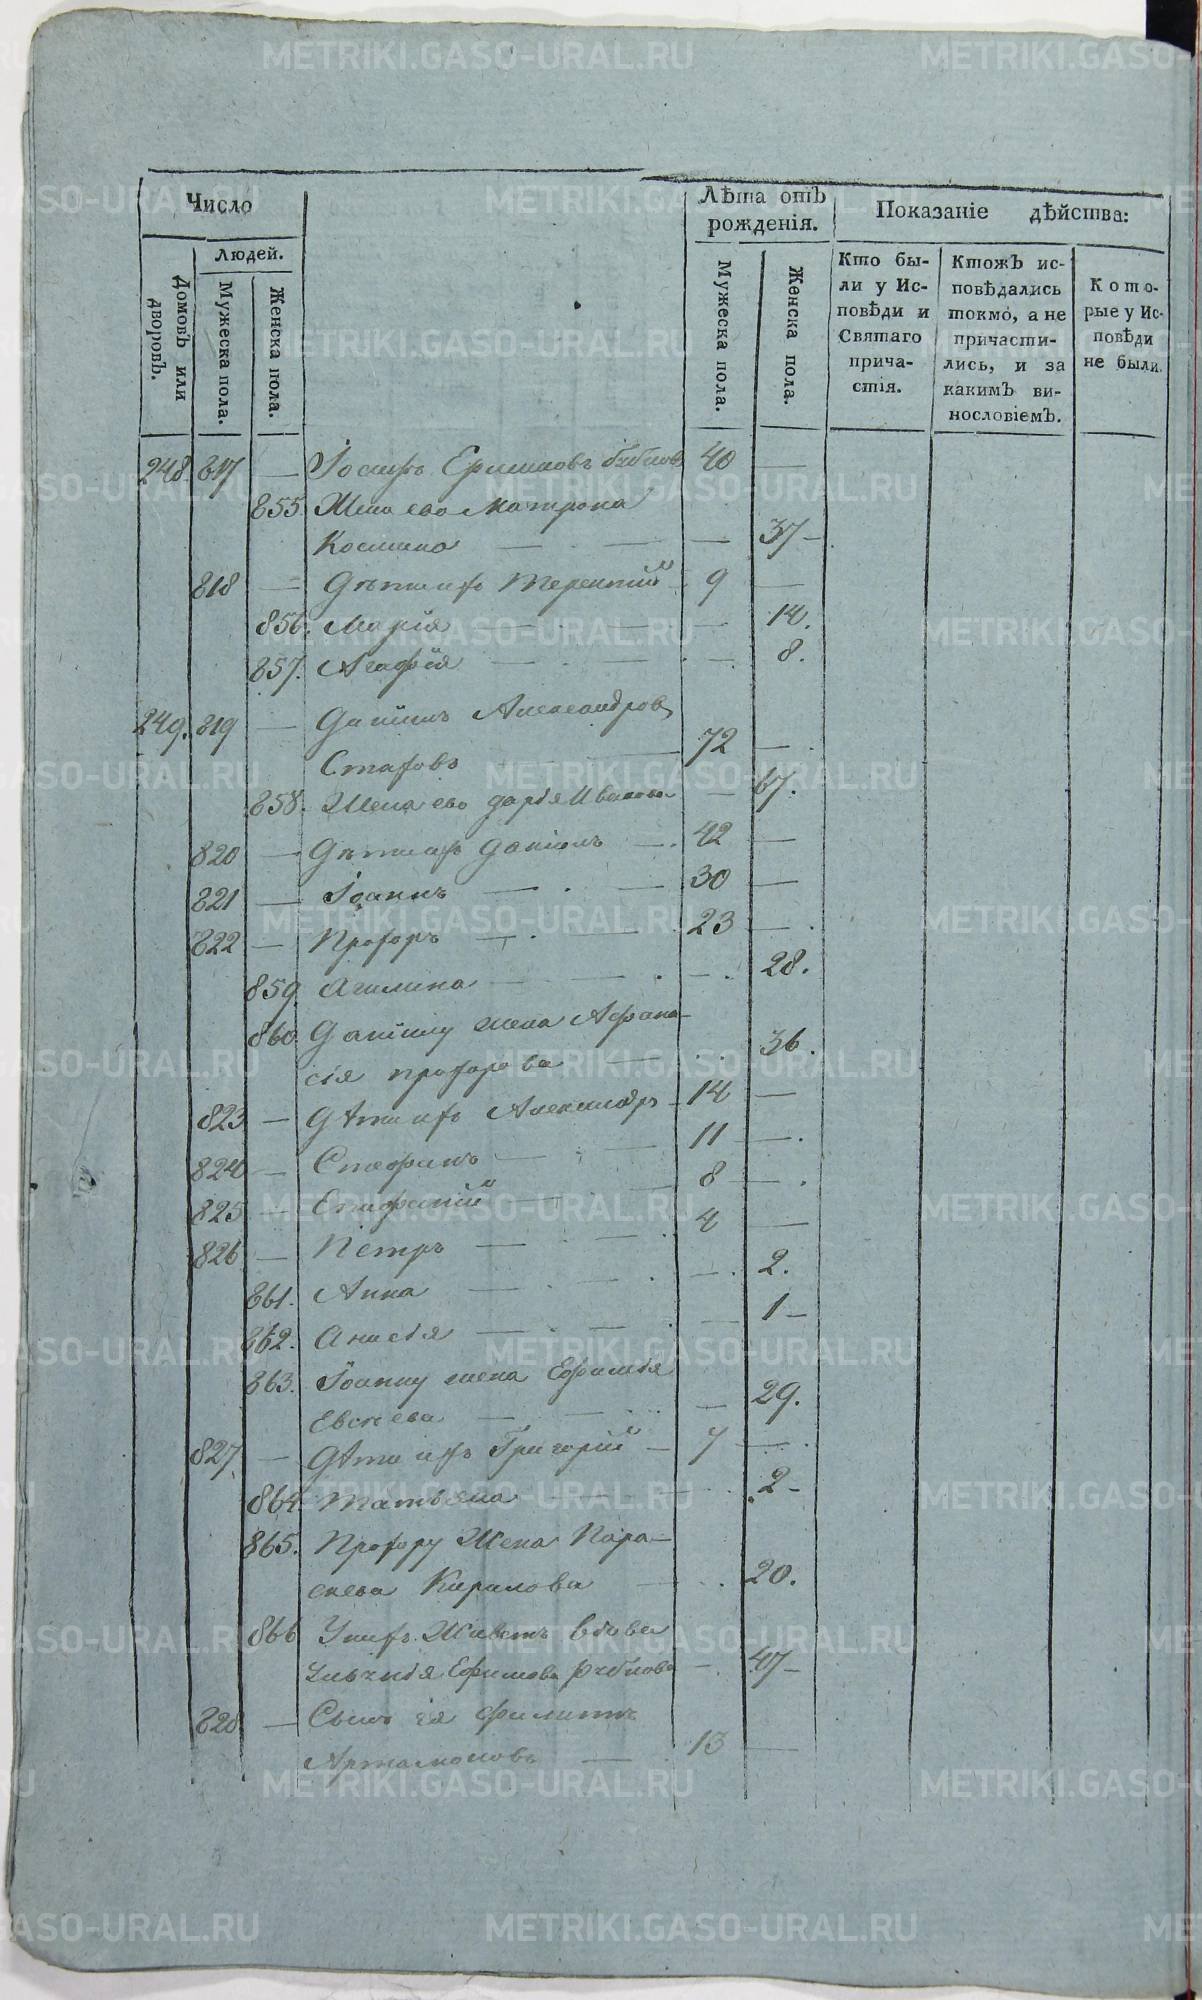 Число
Людей.
Домовъ или дворовъ.
Мужеска пола.
Женска пола.
Лѣта отъ рожденія.
Мужеска пола.
Женска пола.
Показаніе дѣйства:
Кто были у Исповѣди и Святаго причастія.
Ктожъ исповѣдались токмо, а не причастились, и за какимъ винословіемъ.
Которые у Исповѣди не были.
248. 817 — Іосифъ Ефимовъ 40 —
855 Жена ево Матрона
Космина — — — 37 —
818 — Дѣти ихъ Терентій 9 —
856. Марія — — — 14.
857. Агафія — — — 8.
249. 819 — Даніилъ Александровъ
Стаховъ — 72 —
858. Жена ево дарія Иванова — 67.
820 — Дѣти ихъ Даніилъ — 42 —
821 — Іоаннъ — — 30 —
822 — Прохоръ — — 23 —
859. Акилина — — — 28.
860. Даніилу жена Афана-
сія прохорова — 36.
823 — Дѣти ихъ Александръ — 14 —
824 — Стефанъ — — 11 —
825 — Епифаній — — 8 —
826 — Петръ — — 4 —
861. Анна — — — 2.
862. Анисія — — — 1 —
863. Іоанну жена Ефимія
Евсѣева — — — 29.
827 — Дѣти ихъ Григорій — 7 —
864. Татьяна — — 2 —
865. Прохору Жена Пара-
скева Кирилова — 20.
866 У нихъ Живетъ вдова
Ефимова — 47 —
828 — Сынъ ея Филиппъ
Артамоновъ — 13 —
METRIKI.GASO-URAL.RU